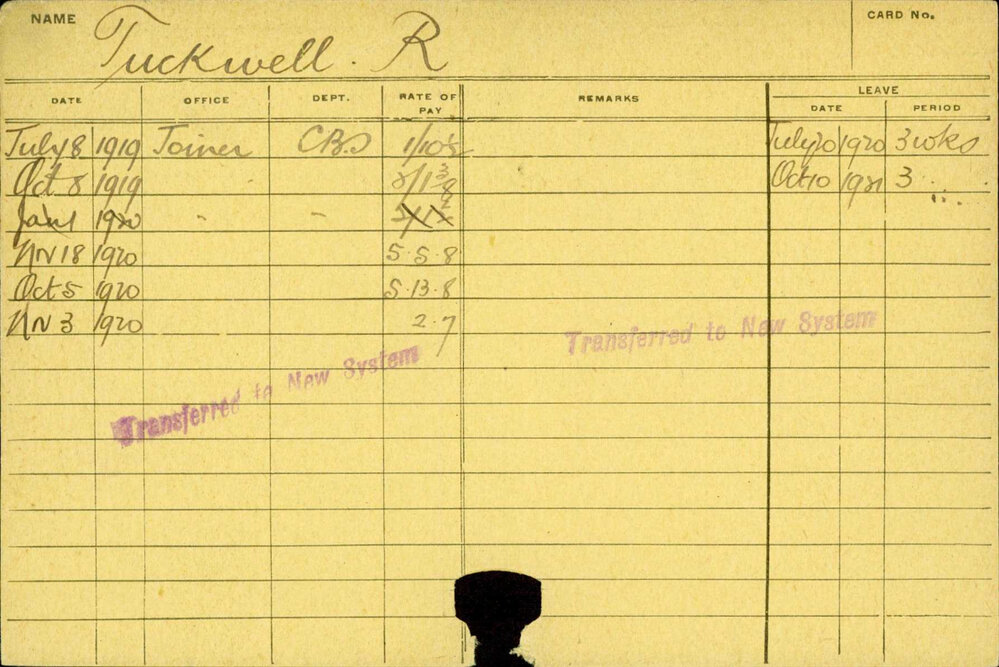 NAME Tuckwell. R CARD No.
DATE OFFICE DEPT. RATE OF PAY REMARKS LEAVE
DATE PERIOD
July 8 1919 Joiner July 20 1920 3 wks
Oct 8 1919 Oct 10 1921 3 "
Jan 1 1920 " "
Nv 18 1920 5.5.8
Oct 5 1920 5.13.8
Nv 3 1920 2.7
Transferred to New System
Transferred to New System